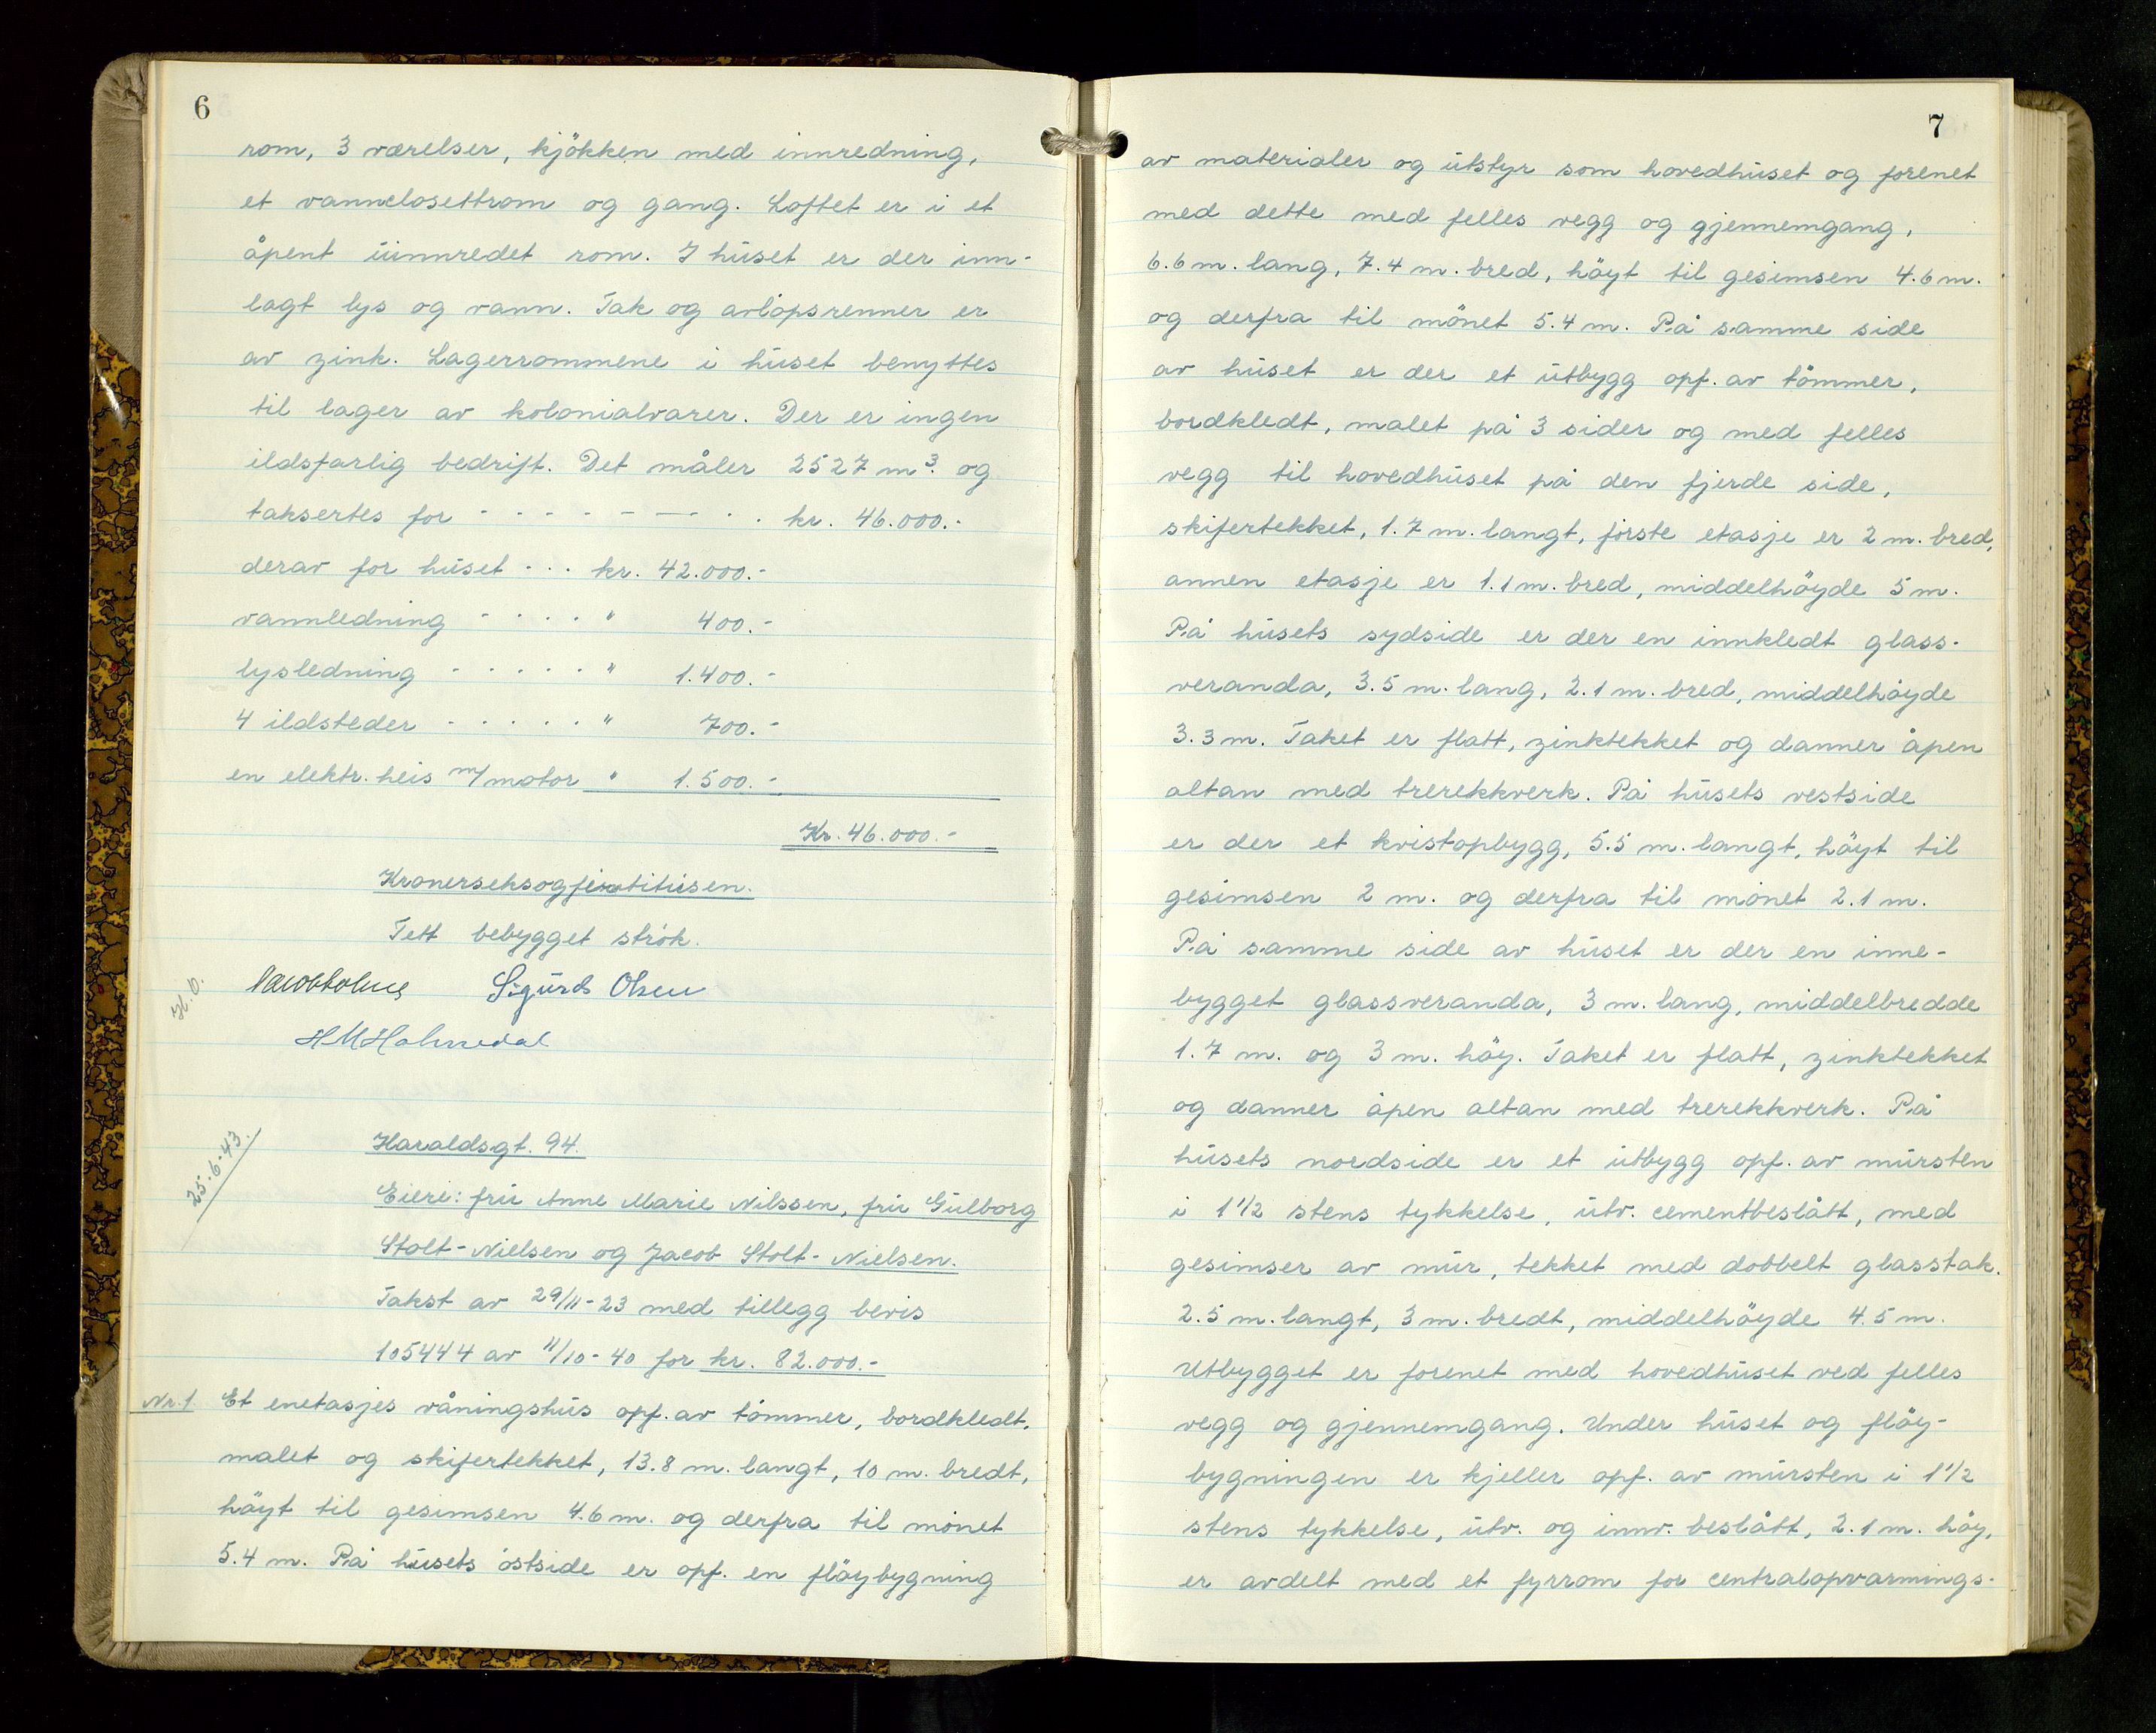 6
rom, 3 værelser, kjökken med innredning,
et vannclosettrom og gang. Loftet er i et
åpent uinnredet rom. I huset er der inn-
lagt lys og vann. Tak og avlöpsrenner er
av zink. Lagerrommene i huset benyttes
til lager av kolonialvarer. Der er ingen
ildsfarlig bedrift. Det måler 2527 m³. og
taksertes for - - - - - - - - kr. 46.000.-
derav for huset - - - kr. 42.000.-
vannledning - - - - " 400.-
lysledning - - - - - " 1.400.-
4 ildsteder - - - - - " 700.-
en elektr. heis m/motor " 1.500.-
Kr. 46.000.-
Tett bebygget strök.
H.O.
Sigurd Olsen
H M Holmedal
25.-6-43.
Haraldsgt. 94.
Eiere: fru Anne Marie Nilssen, fru Gulborg
Stolt-Nielsen og Jacob Stolt-Nielsen.
Takst av 29/11-23 med tillegg bevis
105444 av 11/10-40 for kr. 82.000.-
Nr. 1. Et enetasjes våningshus opf. av tömmer, bordkledt,
malet og skifertekket, 13.8 m. langt, 10 m. bredt,
höyt til gesimsen 4.6 m. og derfra til mönet
5.4 m. På husets östside er opf. en flöybygning
7
av materialer og utstyr som hovedhuset og forenet
med dette med felles vegg og gjennemgang,
6.6 m. lang, 7.4 m. bred, höyt til gesimsen 4.6 m.
og derfra til mönet 5.4 m. På samme side
av huset er der et utbygg opf. av tömmer,
bordkledt, malet på 3 sider og med felles
vegg til hovedhuset på den fjerde side,
skifertekket, 1.7 m. langt, förste etasje er 2 m. bred,
annen etasje er 1.1 m. bred, middelhöyde 5 m.
På husets sydside er der en innkledt glass-
veranda, 3.5 m. lang, 2.1 m. bred, middelhöyde
3.3 m. Taket er flatt, zinktekket og danner åpen
altan med trerekkverk. På husets vestside
er der et kvistopbygg, 5.5 m. langt, höyt til
gesimsen 2 m. og derfra til mönet 2.1 m.
På samme side av huset er der en inne-
bygget glassveranda, 3 m. lang, middelbredde
1.7 m. og 3 m. höy. Taket er flatt, zinktekket
og danner åpen altan med trerekkverk. På
husets nordside er et utbygg opf. av mursten
i 1 1/2 stens tykkelse, utv. cementbeslått, med
gesimser av mur, tekket med dobbelt glasstak.
2.5 m. langt, 3 m. bredt, middelhöyde 4.5 m.
Utbygget er forenet med hovedhuset ved felles
vegg og gjennemgang. Under huset og flöy-
bygningen er kjeller opf. av mursten i 1 1/2
stens tykkelse, utv. og innv. beslått, 2.1 m. höy,
er avdelt med et fyrrom for centralopvarmings-